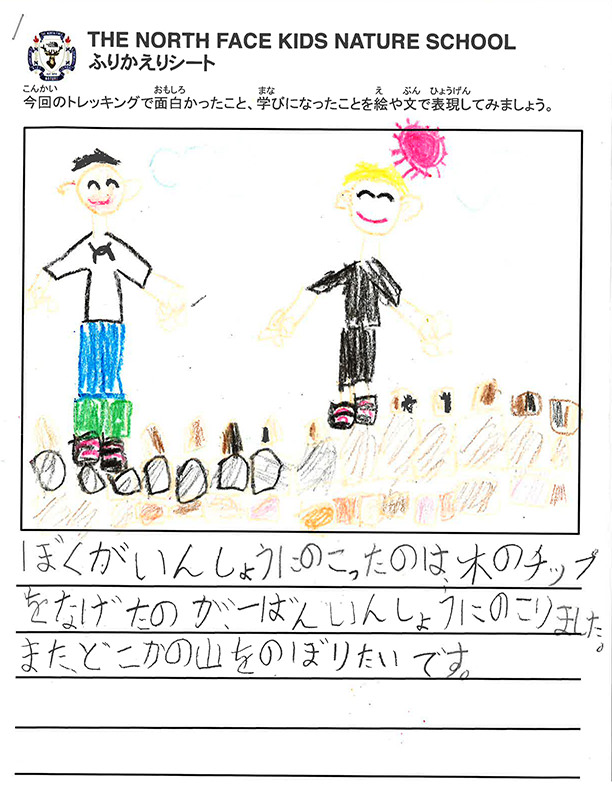 THE NORTH FACE KIDS NATURE SCHOOL
ふりかえりシート
今回のトレッキングで面白かったこと、学びになったことを絵や文で表現してみましょう。
ぼくがいんしょうにのこったのは、木のチップ
をなげたのが、一ばんいんしょうにのこりました。
また、どこかの山をのぼりたいです。